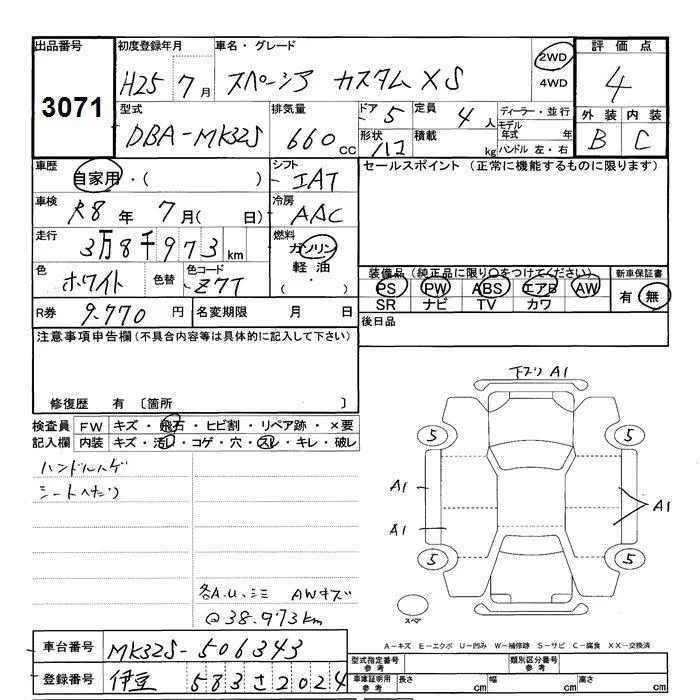 出品番号 初度登録年月 車名・グレード 2WD 評価点
3071 H25 7月 スペーシア カスタム XS 4WD 4
型式 排気量 ドア 5 定員 4人 ディーラー・並行 外装 内装
DBA-MK32S 660cc 形状 ハコ 積載 kg モデル年式 年 ハンドル 左・右 B C
車歴 自家用・( ) シフト IAT セールスポイント (正常に機能するものに限ります)
車検 R8年 7月( 日) 冷房 AAC
走行 3万8千973km 燃料 ガソリン
軽油
( ・ )
色 ホワイト 色替 色コード Z7T
装備品 (純正品に限り○をつけてください) 新車保証書
PS PW ABS エアB AW 有 無
SR ナビ TV カワ
R券 9.770円 名変期限 月 日 後日品
注意事項申告欄 (不具合内容等は具体的に記入して下さい)
修復歴 有 〔箇所 〕
検査員 FW キズ・飛石・ヒビ割・リペア跡・×要
記入欄 内装 キズ・汚レ・コゲ・穴・スレ・キレ・破レ
ハンドルハゲ
シートへたり
各A.U.シミ AWキズ
@38.973km
下ズリ A1
5 5
A1 A1
A1
5 5
スペア
A-キズ E-エクボ U-凹み W-補修跡 S-サビ C-腐食 XX-交換済
車台番号 MK32S-506343
登録番号 伊豆 583 さ 2024
型式指定番号 参考 類別区分番号 参考
車庫証明用 参考 長さ cm 幅 cm 高さ cm